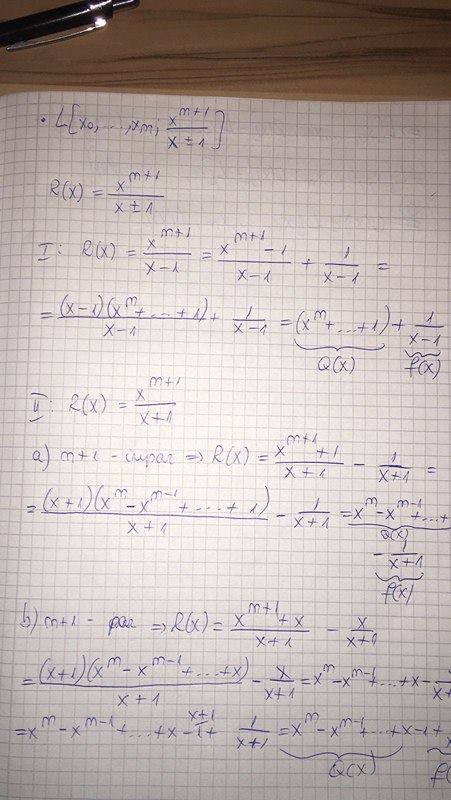 • L[x₀, ..., xₘ; x^(m+1)/(x ± 1)]
R(x) = x^(m+1)/(x ± 1)
I: R(x) = x^(m+1)/(x-1) = (x^(m+1) - 1)/(x-1) + 1/(x-1) =
= (x-1)(x^m + ... + 1)/(x-1) + 1/(x-1) = (x^m + ... + 1) + 1/(x-1)
Q(x) f(x)
II: R(x) = x^(m+1)/(x+1)
a) m+1 - impar ⇒ R(x) = (x^(m+1) + 1)/(x+1) - 1/(x+1) =
= (x+1)(x^m - x^(m-1) + ... + 1)/(x+1) - 1/(x+1) = x^m - x^(m-1) + ... +
Q(x)
- 1/(x+1)
f(x)
b) m+1 - par ⇒ R(x) = (x^(m+1) + x)/(x+1) - x/(x+1)
= (x+1)(x^m - x^(m-1) + ... + x)/(x+1) - x/(x+1) = x^m - x^(m-1) + ... + x -
x+1
= x^m - x^(m-1) + ... + x - 1 + 1/(x+1) = x^m - x^(m-1) + ... + x - 1 +
Q(x) f(